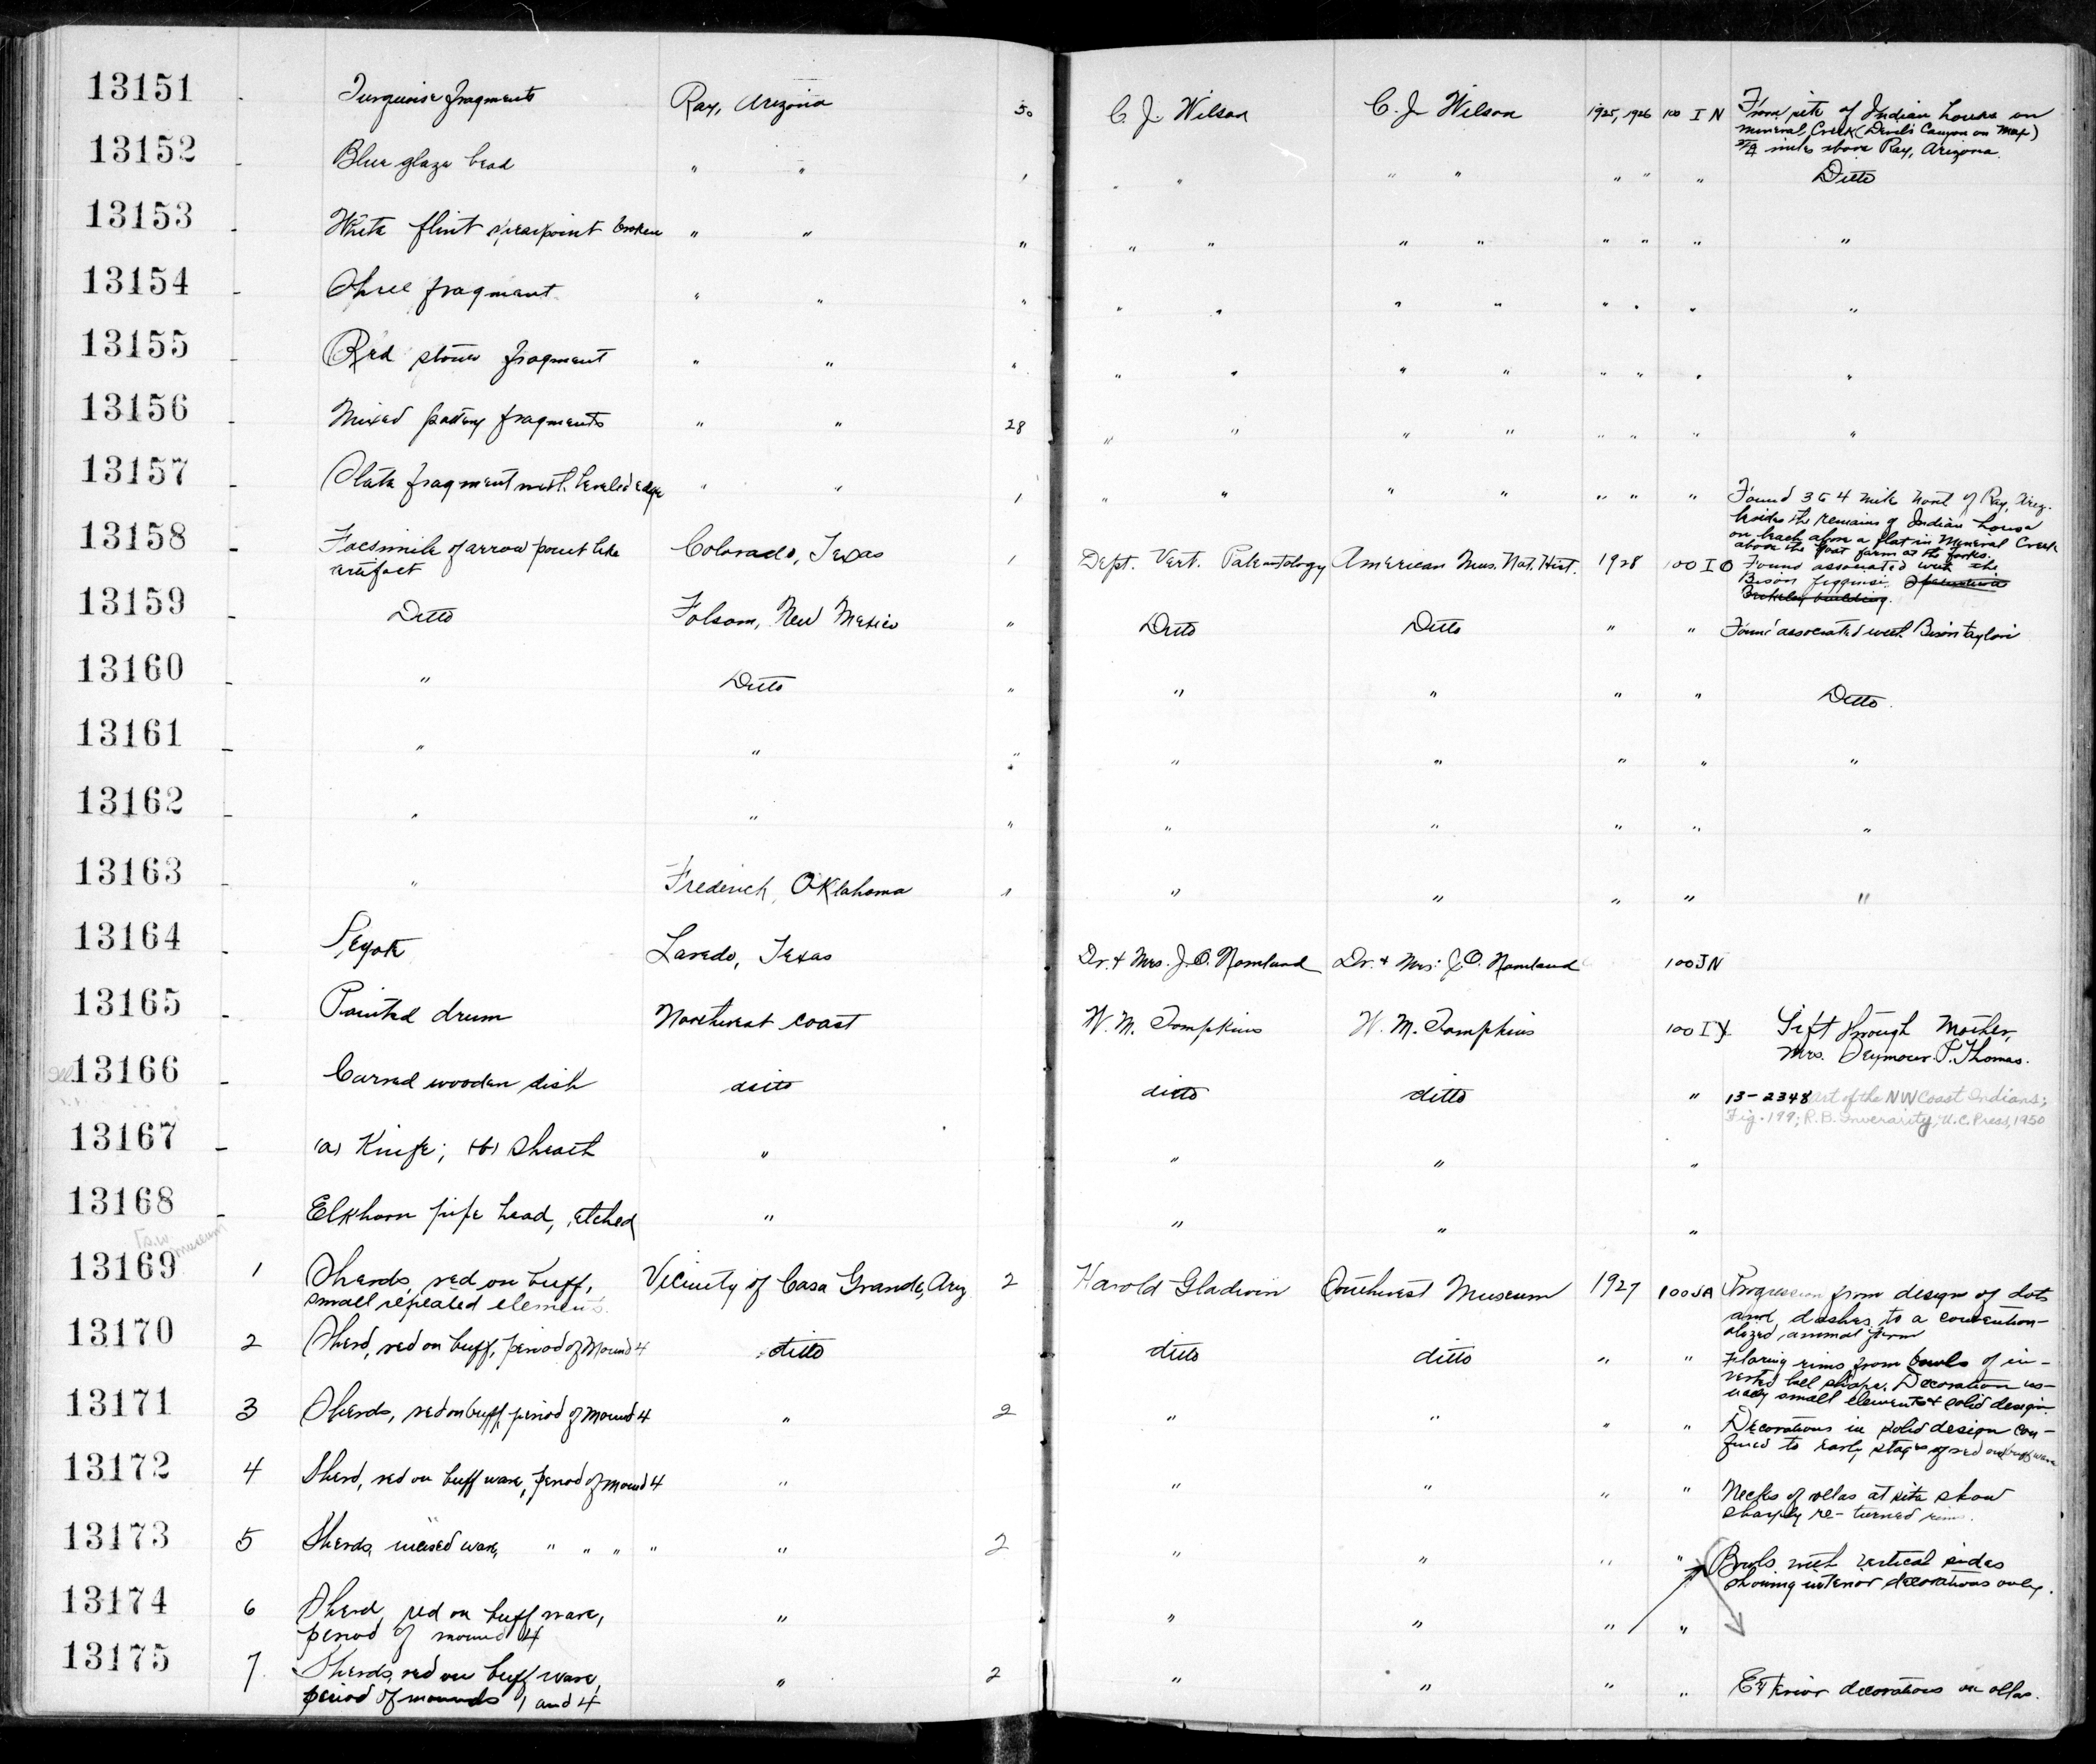 13151 - Turquoise fragments Ray, Arizona 50 C. J. Wilson C. J. Wilson 1925, 1926 100 I N From site of Indian house on
Mineral Creek (Devil's Canyon on Map)
miles above Ray, Arizona.
13152 - Blue glaze bead " " 1 " " " " " " " Ditto
13153 - White flint spearpoint broken " " " " " " " " " " "
13154 - fragment " " " " " " " " " " "
13155 - Red stone fragment " " " " " " " " " " "
13156 - Mixed pottery fragments " " 28 " " " " " " " "
13157 - Slate fragment with beveled edge " " 1 " " " " " " " Found 3 to 4 mile North of Ray, Ariz.
besides the remains of Indian house
on beach above a flat in Mineral Creek
above the goat farm at the forks.
13158 - Facsimile of arrow point like Colorado, Texas 1 Dept. Vert. Paleontology American Mus. Nat. Hist. 1928 100 I O Found associated with the
artifact Bison figginsi.
13159 - Ditto Folsom, New Mexico " Ditto Ditto " " Found associated with Bison taylori
13160 - " Ditto " " " " " Ditto.
13161 - " " " " " " " "
13162 - " " " " " " " "
13163 - " Frederick, Oklahoma " " " " " "
13164 - Peyote Laredo, Texas Dr. & Mrs. J. O. Nomland Dr. & Mrs. J. O. Nomland 100 JN
13165 - Painted drum Northwest coast W. M. Tompkins W. M. Tompkins 100 I Y Gift through Mother,
Mrs. Seymour P. Thomas.
13166 - Carved wooden dish ditto ditto ditto " 13-2348 Art of the NW Coast Indians;
Fig. 199; R. B. Inverarity, U.C. Press, 1950
13167 - (a) Knife; (b) sheath " " " "
13168 - Elkhorn pipe head, etched " " " "
[S.W. museum
13169 1 Sherds, red on buff, Vicinity of Casa Grande, Ariz 2 Harold Gladwin Southwest Museum 1927 100 JA Progression from design of dots
small repeated elements. and dashes to a convention-
alized animal form
13170 2 Sherd, red on buff, period of Mound 4 ditto ditto ditto " " Flaring rims from bowls of in-
verted bell shape. Decoration us-
ually small elements & solid design.
13171 3 Sherds, red on buff, period of Mound 4 " 2 " " " " Decorations in solid design con-
fined to early stages of red on buff ware
13172 4 Sherd, red on buff ware, period of Mound 4 " " " " " Necks of ollas at site show
sharply re-turned rims.
13173 5 Sherds, incised ware, " " " " " 2 " " " " Bowls with vertical sides
showing interior decorations only.
13174 6 Sherd, red on buff ware, " " " " "
period of mound 4
13175 7 Sherds, red on buff ware, " 2 " " " " Exterior decorations on ollas.
period of mounds 1 and 4